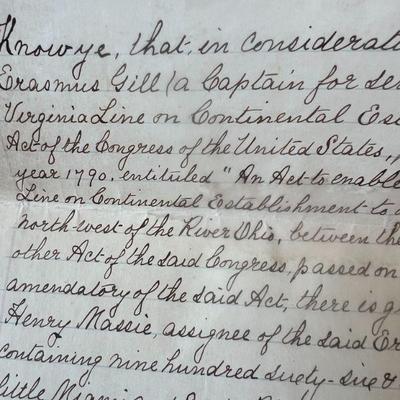 Know ye, that, in considerati
Erasmus Gill (a Captain for ser
Virginia Line on Continental Est
Act of the Congress of the United States,
year 1790, entituled "An Act to enable
Line on Continental Establishment to
north-west of the River Ohio, between the
other Act of the said Congress, passed on
amendatory of the said Act, there is g
Henry Massie, assignee of the said Er
containing nine hundred sixty-six &
little Miami